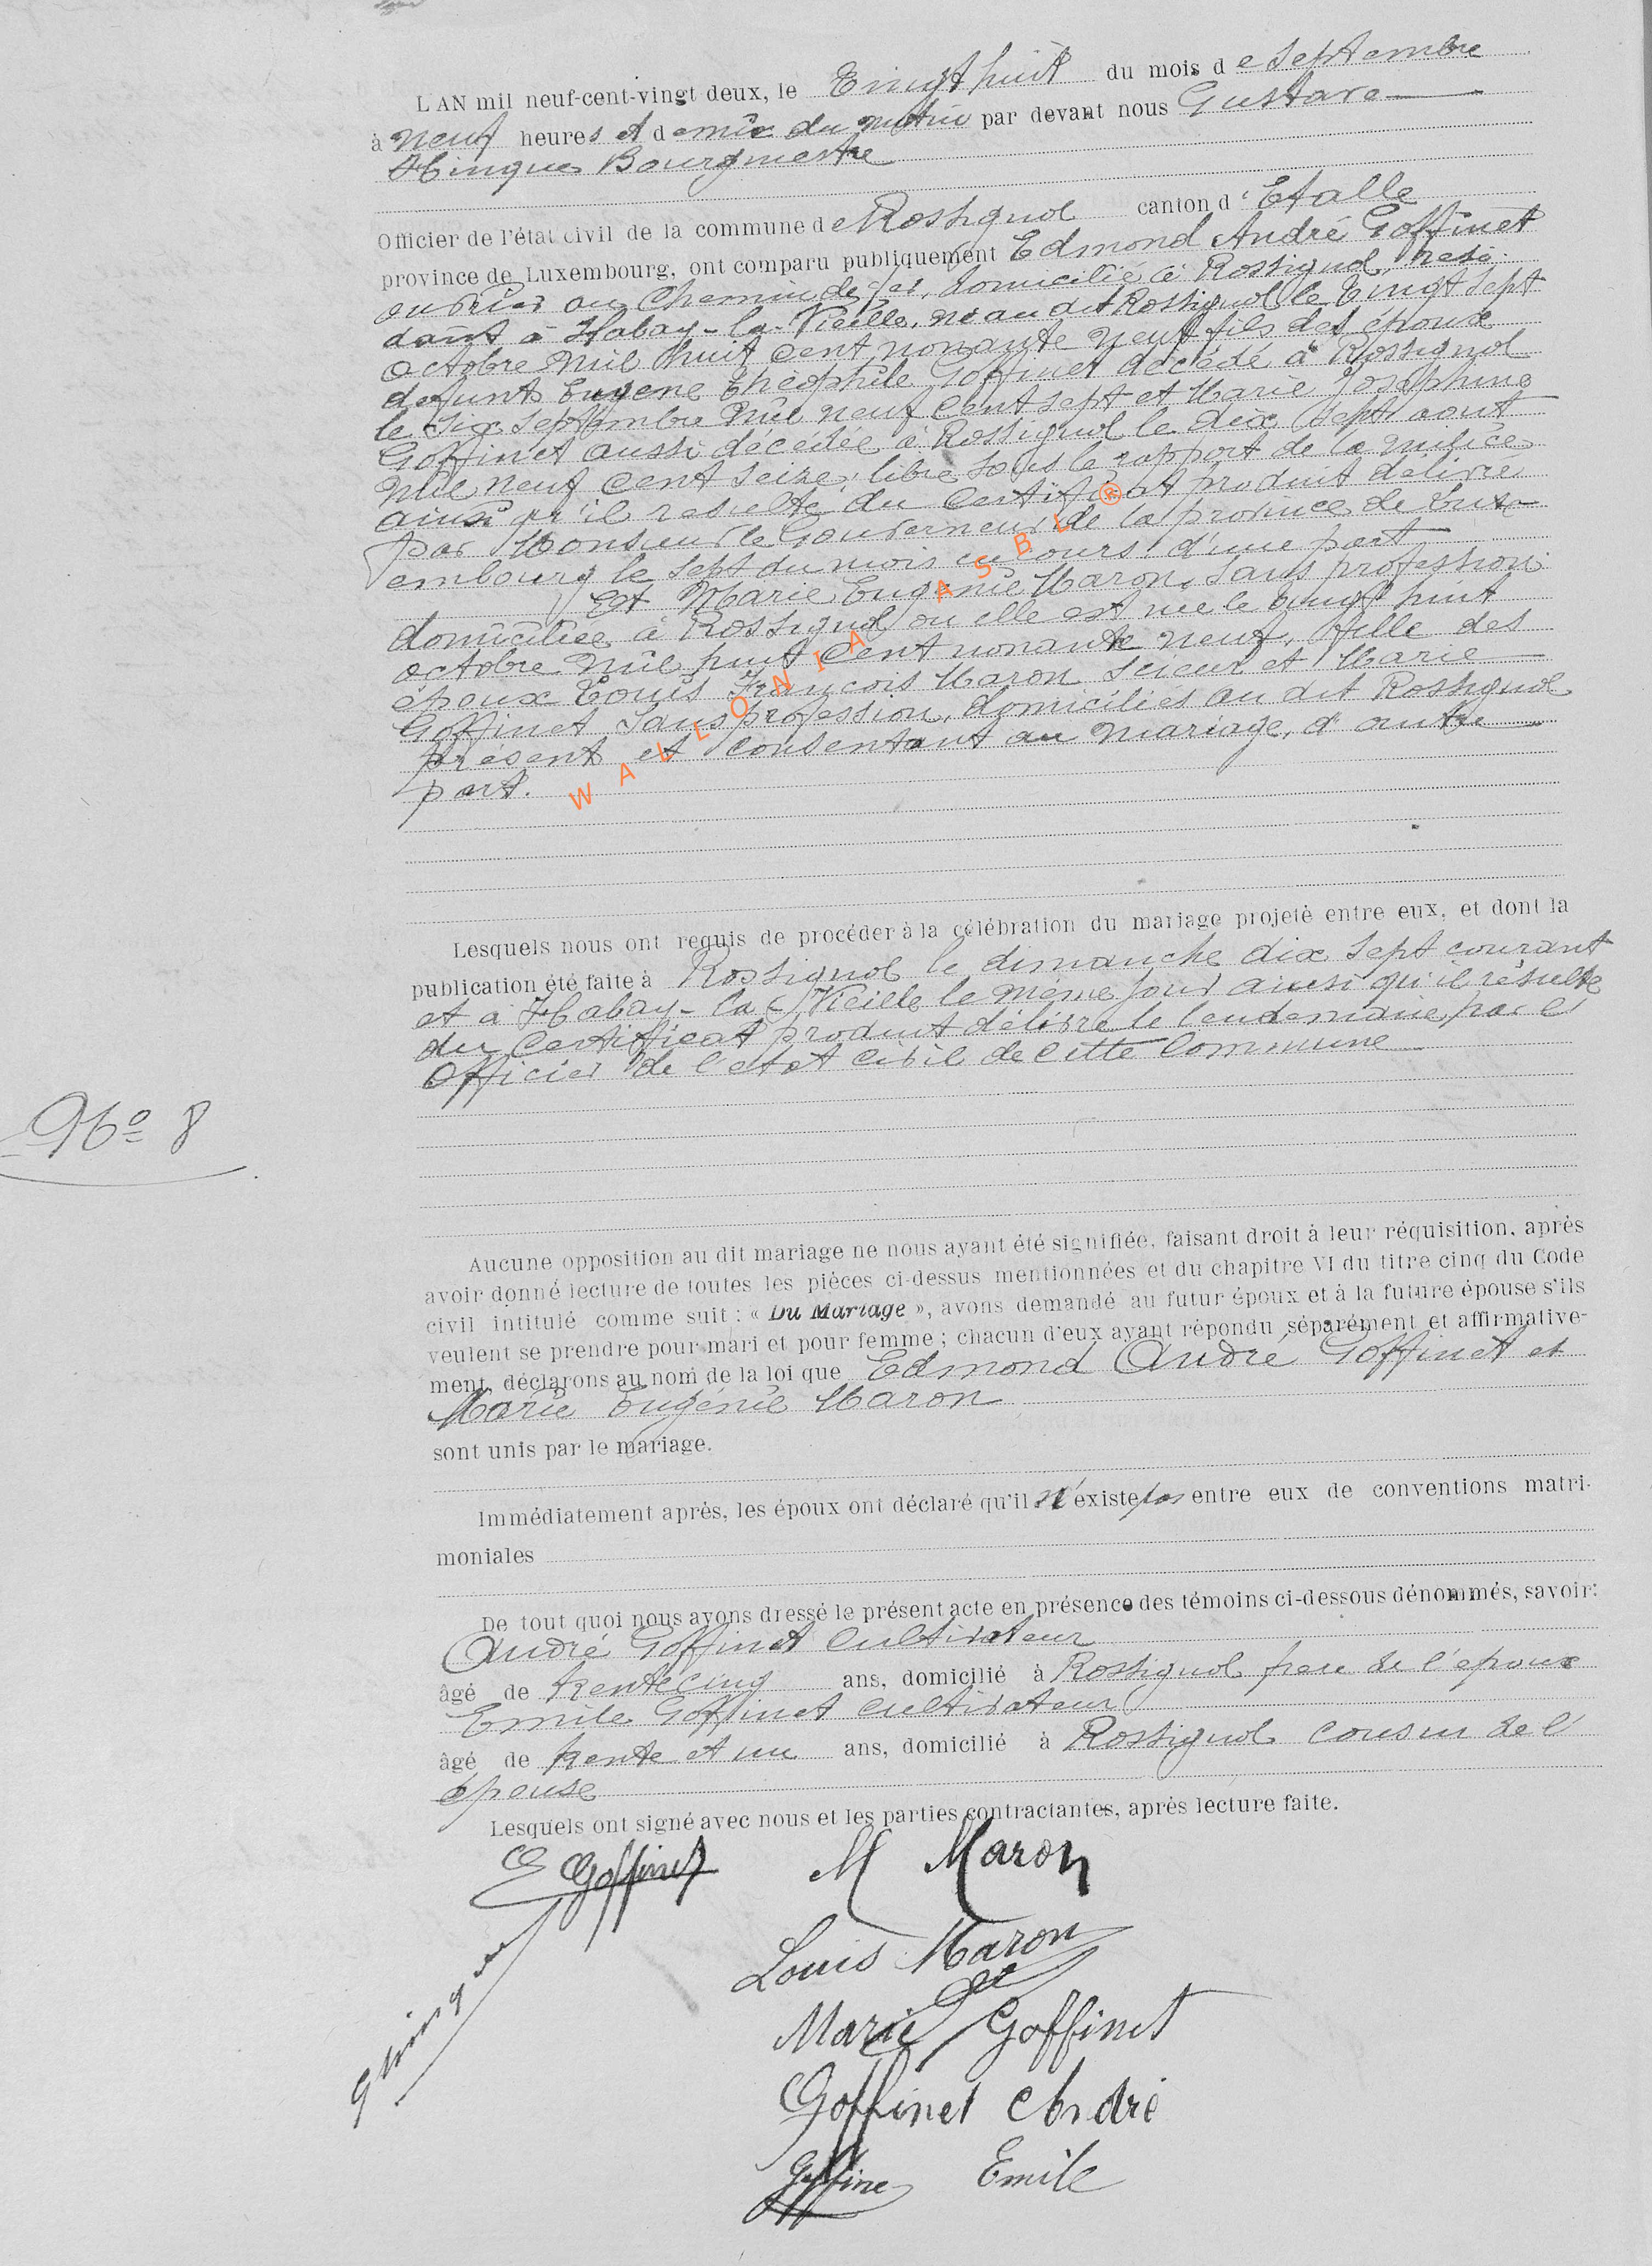 L'AN mil neuf-cent-vingt deux, le Vingt huit du mois de Septembre
à neuf heures et demie du matin par devant nous Gustave
Hinque Bourgmestre
Officier de l'état civil de la commune de Rossignol canton d'Etalle
province de Luxembourg, ont comparu publiquement Edmond André Goffinet
ouvrier au Chemin de fer, domicilié à Rossignol, rési-
dant à Habay-la-Vieille, né au dit Rossignol le Vingt Sept
octobre mil huit cent nonante neuf fils des époux
defunts Eugene Théophile Goffinet décédé à Rossignol
le six septembre mil neuf cent sept et Marie Joséphine
Goffinet aussi décédée à Rossignol le dix sept aout
mil neuf cent seize, libre sous le rapport de la milice
ainsi qu'il resulte du certificat produit délivré
par Monsieur le Gouverneur de la province de Lux-
embourg le sept du mois en cours, d'une part
Et Marie Eugénie Maron, Sans profession
domiciliée à Rossignol ou elle est née le vingt huit
octobre mil huit cent nonante neuf, fille des
époux Louis François Maron Scieur et Marie
Goffinet Sans profession, domiciliés au dit Rossignol
présent et consentant au mariage, d'autre
part.
WALLONIA ASBL ®
Lesquels nous ont requis de procéder à la célébration du mariage projeté entre eux, et dont la
publication été faite à Rossignol le dimanche dix sept courant
et à Habay-la-Vieille le même jour ainsi qu'il résulte
du certificat produit délivré le lendemain par l'
Officier de l'etat civil de cette commune
No 8
Aucune opposition au dit mariage ne nous ayant été signifiée, faisant droit à leur réquisition, après
avoir donné lecture de toutes les pièces ci-dessus mentionnées et du chapitre VI du titre cinq du Code
civil intitulé comme suit : « Du Mariage », avons demandé au futur époux et à la future épouse s'ils
veulent se prendre pour mari et pour femme ; chacun d'eux ayant répondu séparément et affirmative-
ment, déclarons au nom de la loi que Edmond André Goffinet et
Marie Eugénie Maron
sont unis par le mariage.
Immédiatement après, les époux ont déclaré qu'il n'existe pas entre eux de conventions matri-
moniales
De tout quoi nous avons dressé le présent acte en présence des témoins ci-dessous dénommés, savoir:
André Goffinet Cultivateur
âgé de trente cinq ans, domicilié à Rossignol frere de l'epoux
Emile Goffinet cultivateur
âgé de trente et un ans, domicilié à Rossignol cousin de l'
épouse
Lesquels ont signé avec nous et les parties contractantes, après lecture faite.
E Goffinet M Maron
Louis Maron
Marie Goffinet
Goffinet André
Goffine Emile